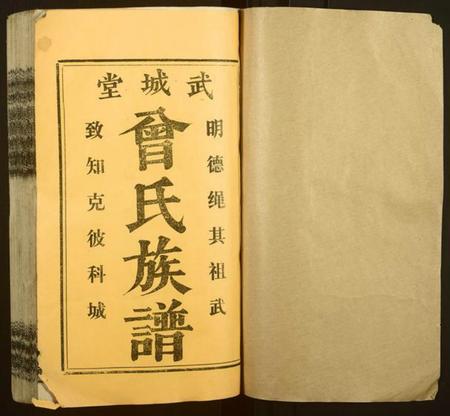 武城堂
明德绳其祖武
曾氏族譜
致知克彼科城